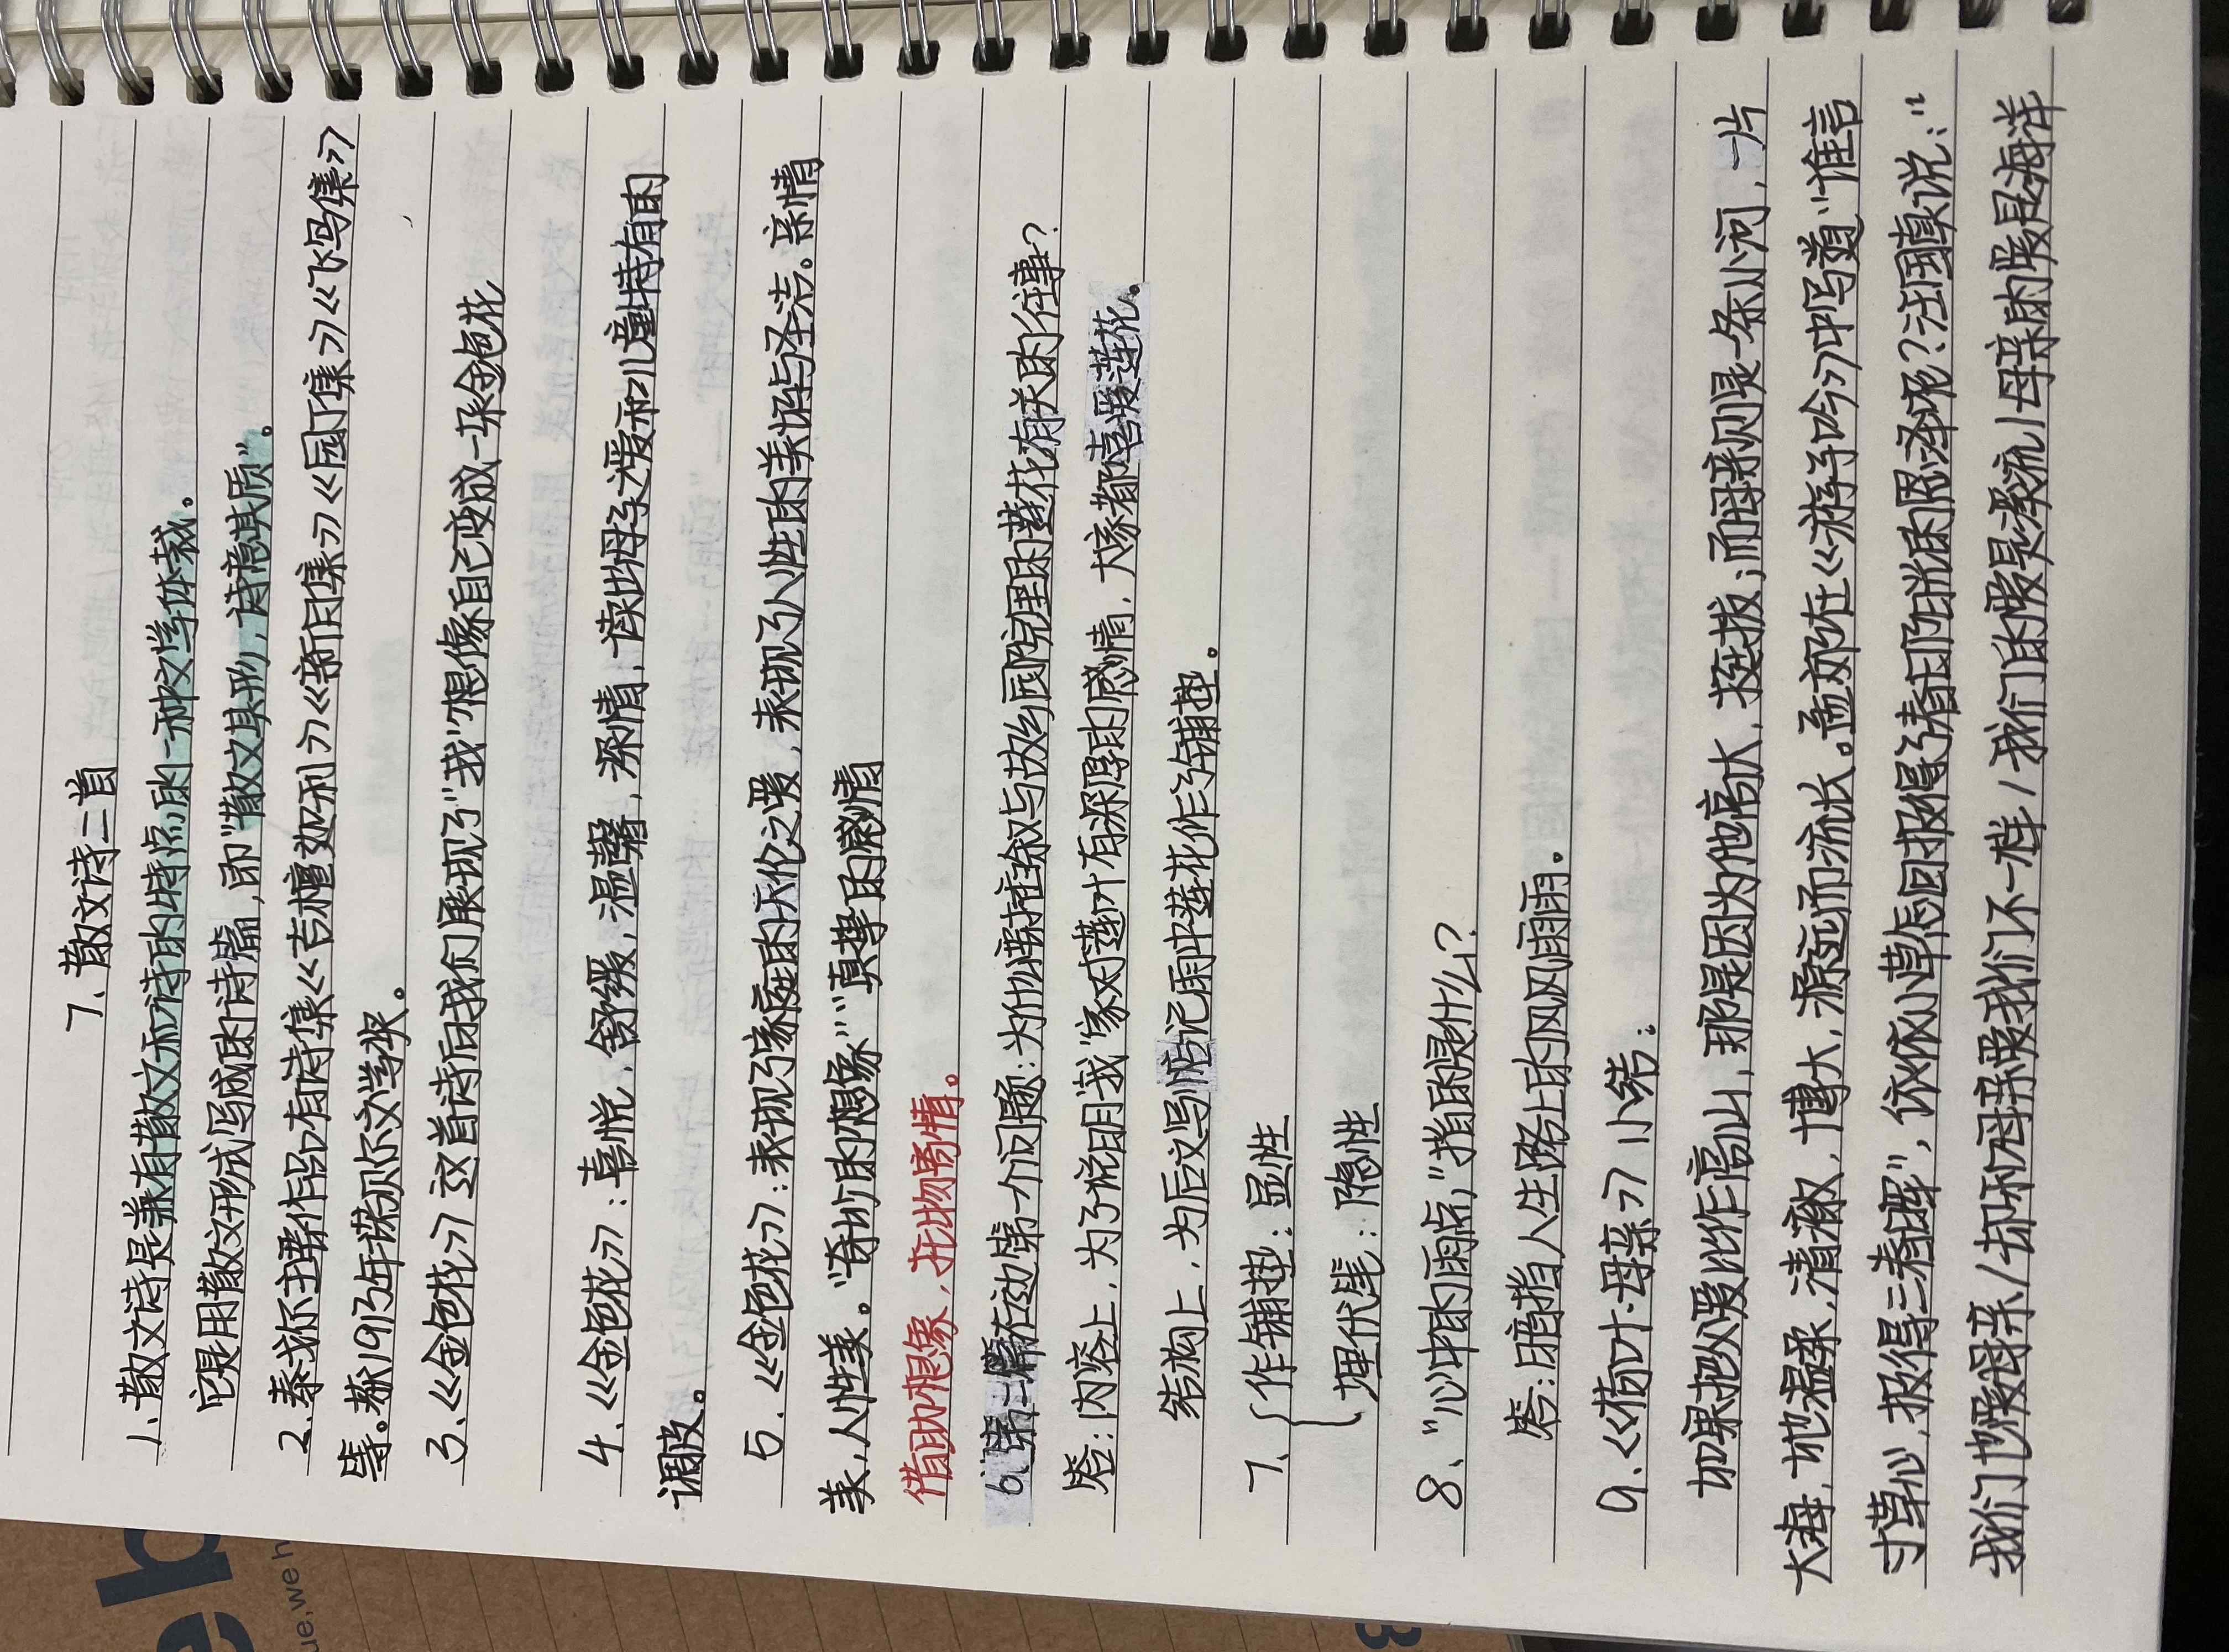 7、散文诗二首
1、散文诗是兼有散文和诗的特点的一种文学体裁。
它是用散文形式写成的诗篇,即"散文其形,诗意其质"。
2.泰戈尔主要作品有诗集《吉檀迦利》《新月集》《园丁集》《飞鸟集》
等。获1913年诺贝尔文学奖。
3.《金色花》这首诗向我们展现了"我"想像自己变成一朵金色花
4.《金色花》:喜悦,舒缓,温馨,深情,读出母子之爱和儿童特有的
调皮。
5.《金色花》:表现了家庭的天伦之爱,表现了人性的美好与圣洁。亲情
美,人性美。"奇妙的想像""真挚的感情
借助想像,托物寄情。
6、第二篇右边第一个问题:为什么要插叙与故乡园院里的莲花有关的往事?
答:内容上,为了说明"我"家对莲叶有深厚的感情,大家都喜爱莲花。
结构上,为后文写临记雨中莲花作了铺垫。
7、作铺垫:显性
埋伏笔:隐性
8、"心中的雨点"指的是什么?
答:暗指人生路上的风风雨雨。
9.《荷叶·母亲》小结:
如果把父爱比作高山,那是因为他高大,挺拔;而母亲则是一条小河,一片
大海,她温柔,清澈,博大,源远而流长。孟郊在《游子吟》中写道"谁言
寸草心,报得三春晖",依依小草怎回报得了春日阳光的恩泽呢?汪国真说:"
我们也爱母亲/却和母亲爱我们不一样/我们的爱是溪流/母亲的爱是海洋
ue,we h